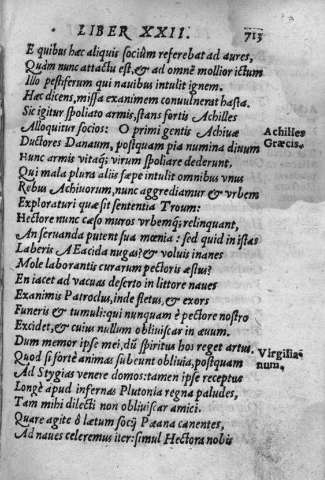 LIBER XXII. 713
E quibus hæc aliquis sociûm referebat ad aures,
Quàm nunc attactu est, & ad omnē mollior ictum
Illo pestiferum qui nauibus intulit ignem.
Hæc dicens, missa exanimem conuulnerat hasta.
Sic igitur spoliato armis, stans fortis Achilles
Alloquitur socios: O primi gentis Achiuæ
Achilles
Ductores Danaum, postquam pia numina diuum
Græcis.
Hunc armis vitaq; virum spoliare dederunt.
Qui mala plura aliis sæpe intulit omnibus vnus
Rebus Achiuorum, nunc aggrediamur & vrbem
Exploraturi quæ sit sententia Troum:
Hectore nunc cæso muros vrbemq; relinquant,
An seruanda putent sua mœnia: sed quid in istas
Laberis AEacida nugas? & voluis inanes
Mole laborantis curarum pectoris æstus?
En iacet ad vacuas deserto in littore naues
Exanimis Patroclus, inde fletus, & exors
Funeris & tumuli: qui nunquam è pectore nostro
Excidet, & cuius nullum obliuiscar in æuum.
Dum memor ipse mei, dū spiritus hos reget artus.
Virgilia
Quod si fortè animas subeunt obliuia, postquam
num.
Ad Stygias venere domos: tamen ipse receptus
Longè apud infernas Plutonia regna paludes,
Tam mihi dilecti non obliuiscar amici.
Quare agite ô lætum socij Pæana canentes,
Ad naues celeremus iter: simul Hectora nobis